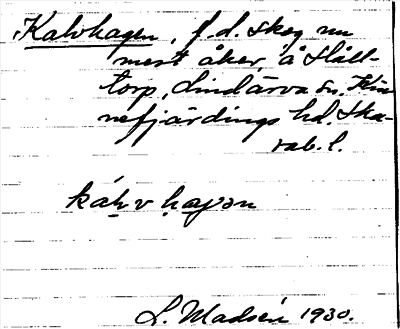 Kalvhagen, f.d. skog nu
mest åker, å Håll-
torp, Lindärva sn, Kin-
nefjärdings hd. Ska-
rab. l.
L. Madsén 1930.